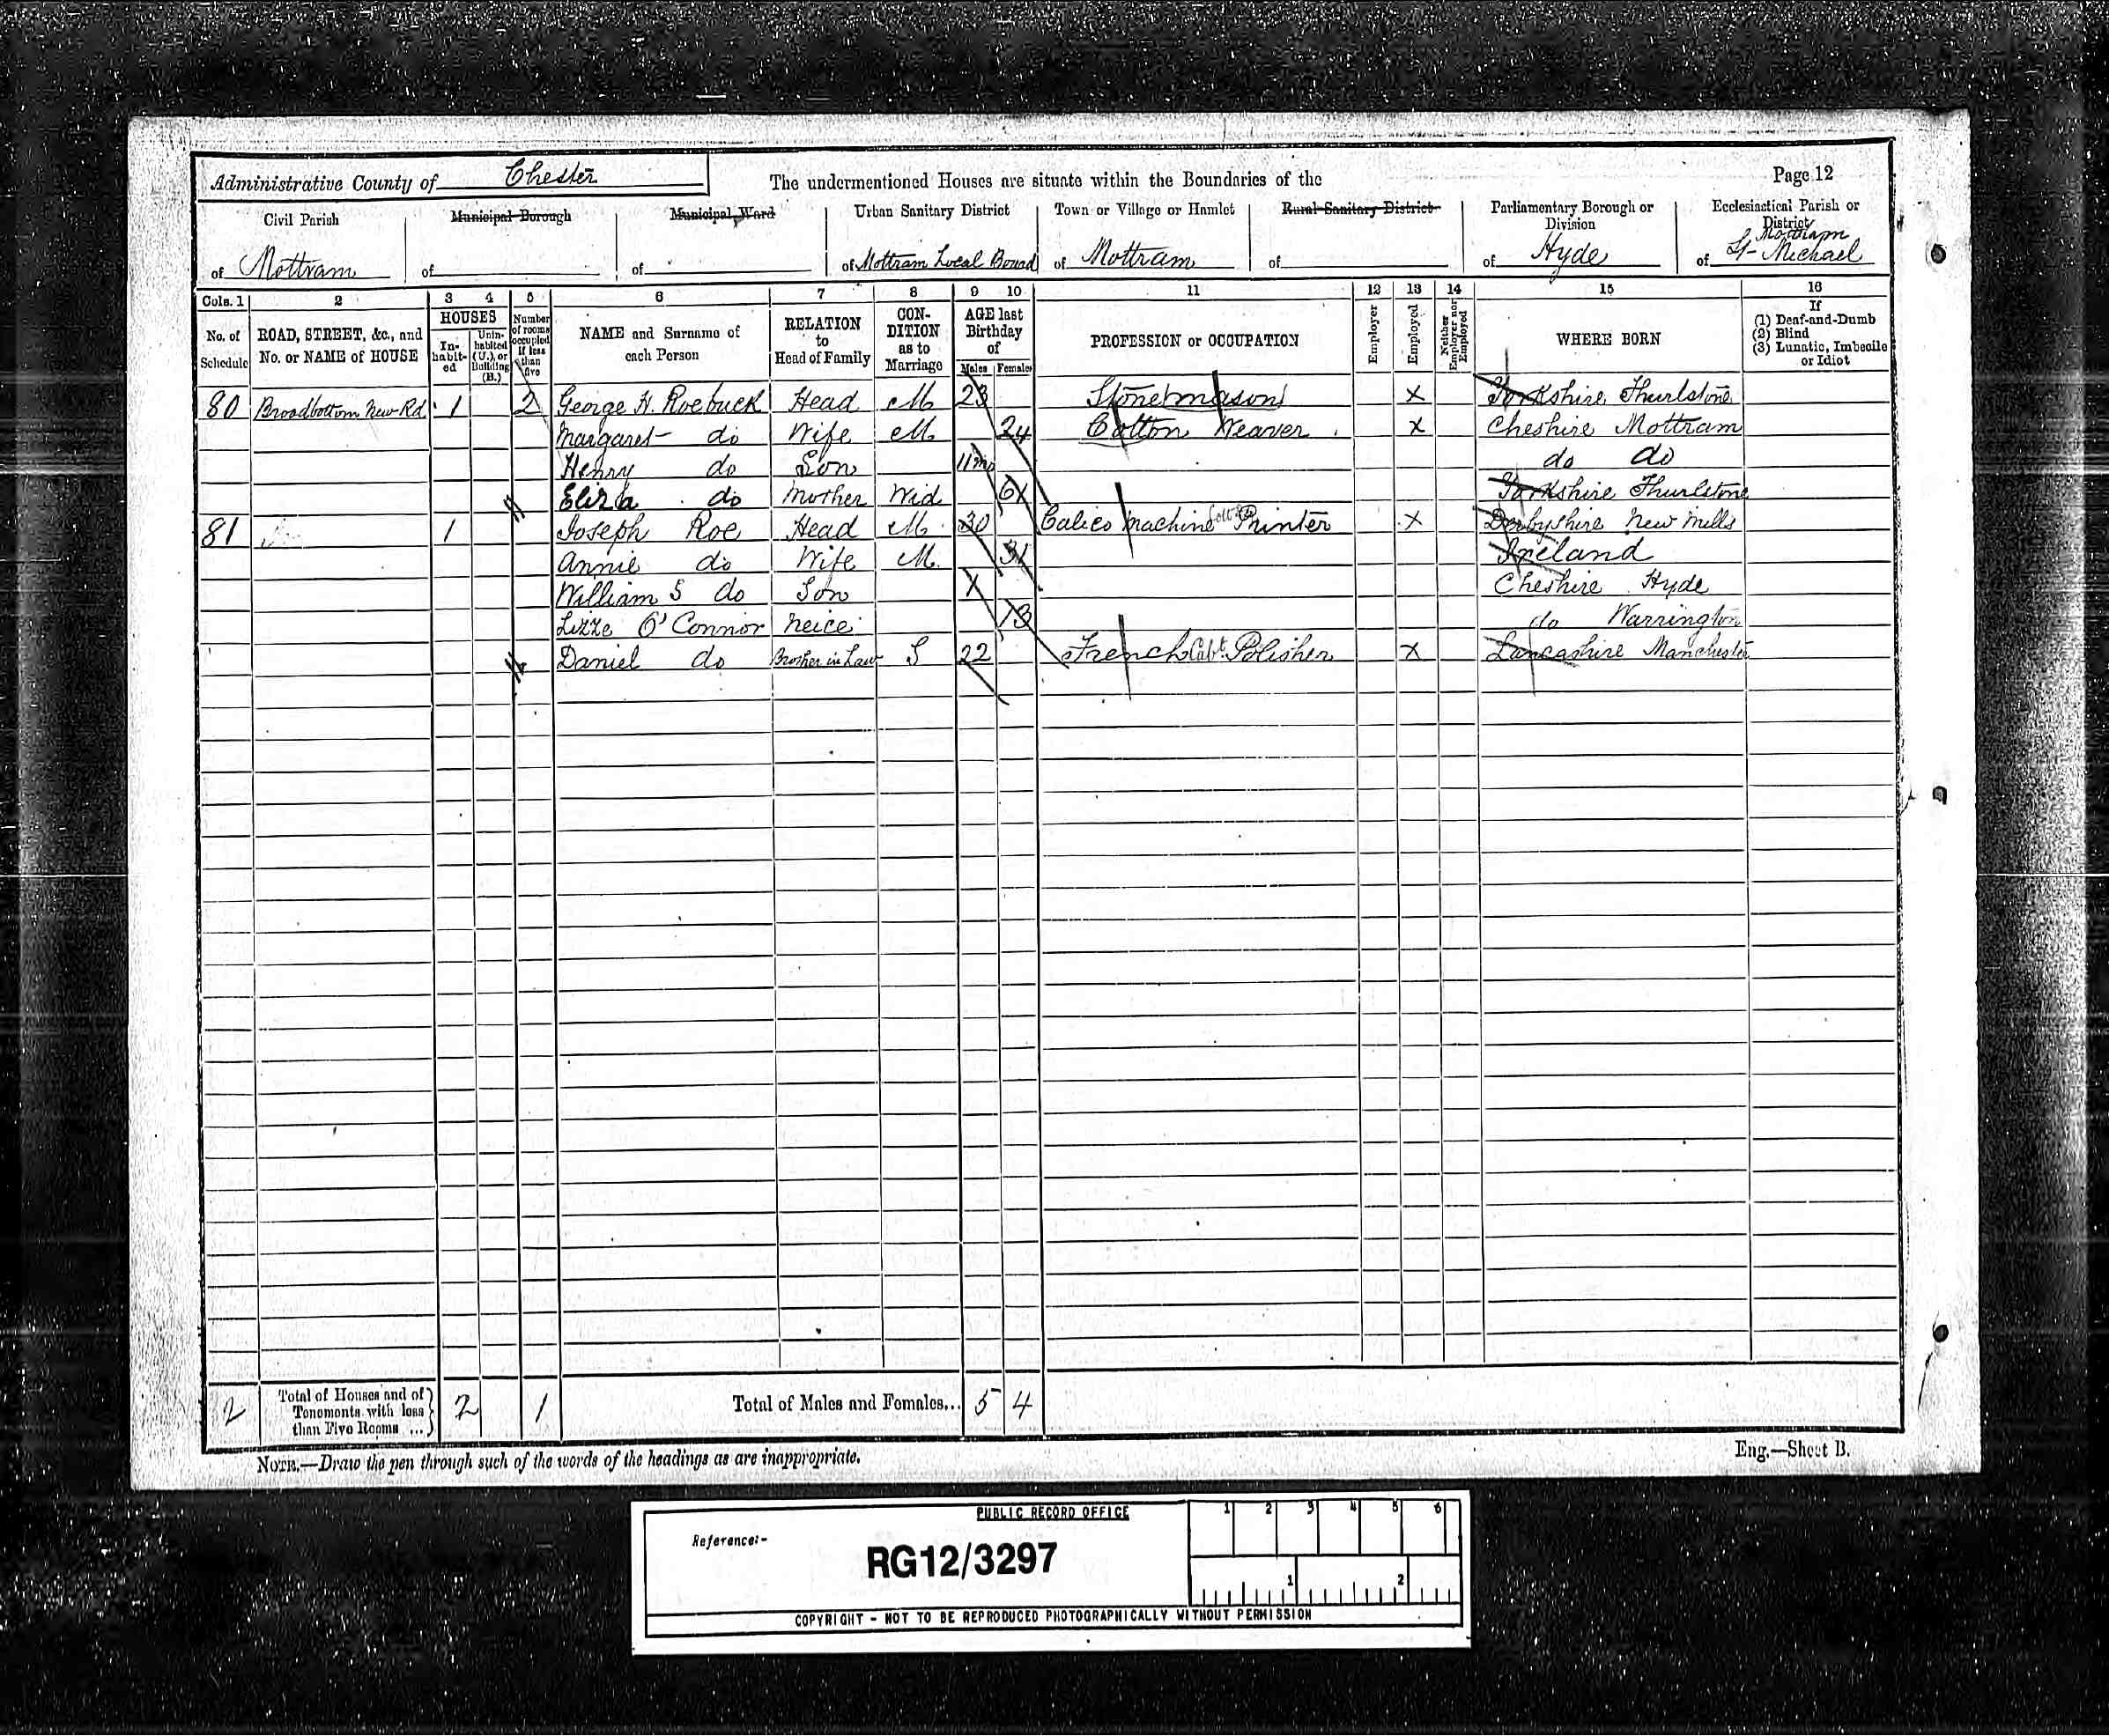 Administrative County of Chester
The undermentioned Houses are situate within the Boundaries of the
Page 12
Civil Parish Municipal Borough Municipal Ward Urban Sanitary District Town or Village or Hamlet Rural Sanitary District Parliamentary Borough or Division Ecclesiastical Parish or District
of Mottram of of of Mottram Local Board of Mottram of of Hyde of Mottram St Michael
Cols. 1 2 3 4 5 6 7 8 9 10 11 12 13 14 15 16
No. of Schedule ROAD, STREET, &c., and No. or NAME of HOUSE HOUSES In-habit-ed Unin-habited (U.), or Building (B.) Number of rooms occupied if less than five NAME and Surname of each Person RELATION to Head of Family CON-DITION as to Marriage AGE last Birthday of Males Females PROFESSION or OCCUPATION Employer Employed Neither Employer nor Employed WHERE BORN If (1) Deaf-and-Dumb (2) Blind (3) Lunatic, Imbecile or Idiot
80 Broadbottom New Rd 1 2 George H. Roebuck Head M 23 Stonemason X Yorkshire Thurlstone
Margaret do Wife M 24 Cotton Weaver X Cheshire Mottram
Henry do Son 11mo do do
Eliza do Mother Wid 61 Yorkshire Thurlstone
81 1 Joseph Roe Head M 30 Calico Machine Printer X Derbyshire New Mills
Annie do Wife M 31 Ireland
William S do Son Cheshire Hyde
Lizze O'Connor Neice 13 do Warrington
Daniel do Brother in Law S 22 French Polisher X Lancashire Manchester
2 Total of Houses and of Tenements with less than Five Rooms ... 2 1 Total of Males and Females... 5 4
NOTE.—Draw the pen through such of the words of the headings as are inappropriate.
Eng.—Sheet B.
PUBLIC RECORD OFFICE
1 2 3 4 5 6
Reference:-
RG12/3297
1 2
COPYRIGHT - NOT TO BE REPRODUCED PHOTOGRAPHICALLY WITHOUT PERMISSION